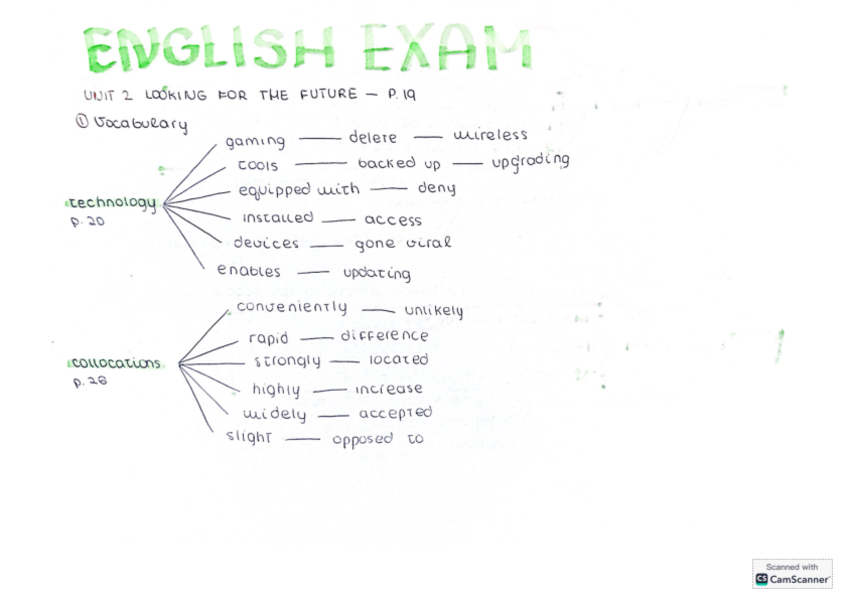 ENGLISH EXAM
UNIT 2 LOOKING FOR THE FUTURE — P.19
① Vocabulary
gaming — delete — wireless
tools — backed up — upgrading
equipped with — deny
technology
p. 20
installed — access
devices — gone viral
enables — updating
conveniently — unlikely
rapid — difference
strongly — located
collocations
p. 28
highly — increase
widely — accepted
slight — opposed to
Scanned with
CS CamScanner